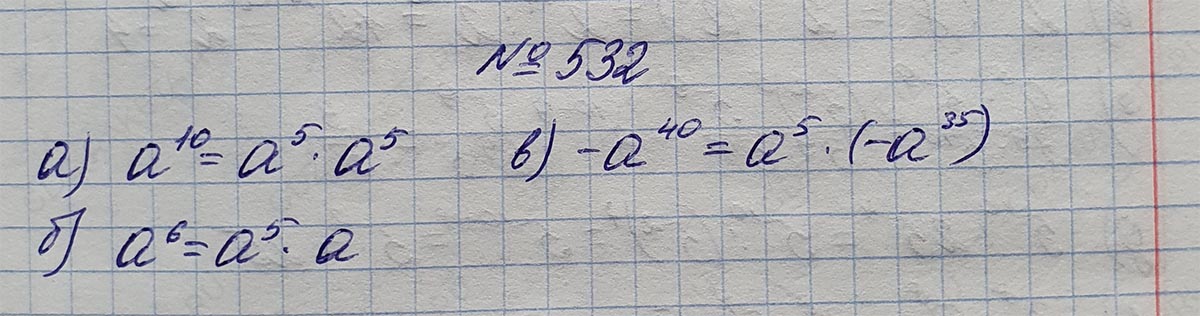 № 532
а) a¹⁰ = a⁵ · a⁵ в) -a⁴⁰ = a⁵ · (-a³⁵)
б) a⁶ = a⁵ · a